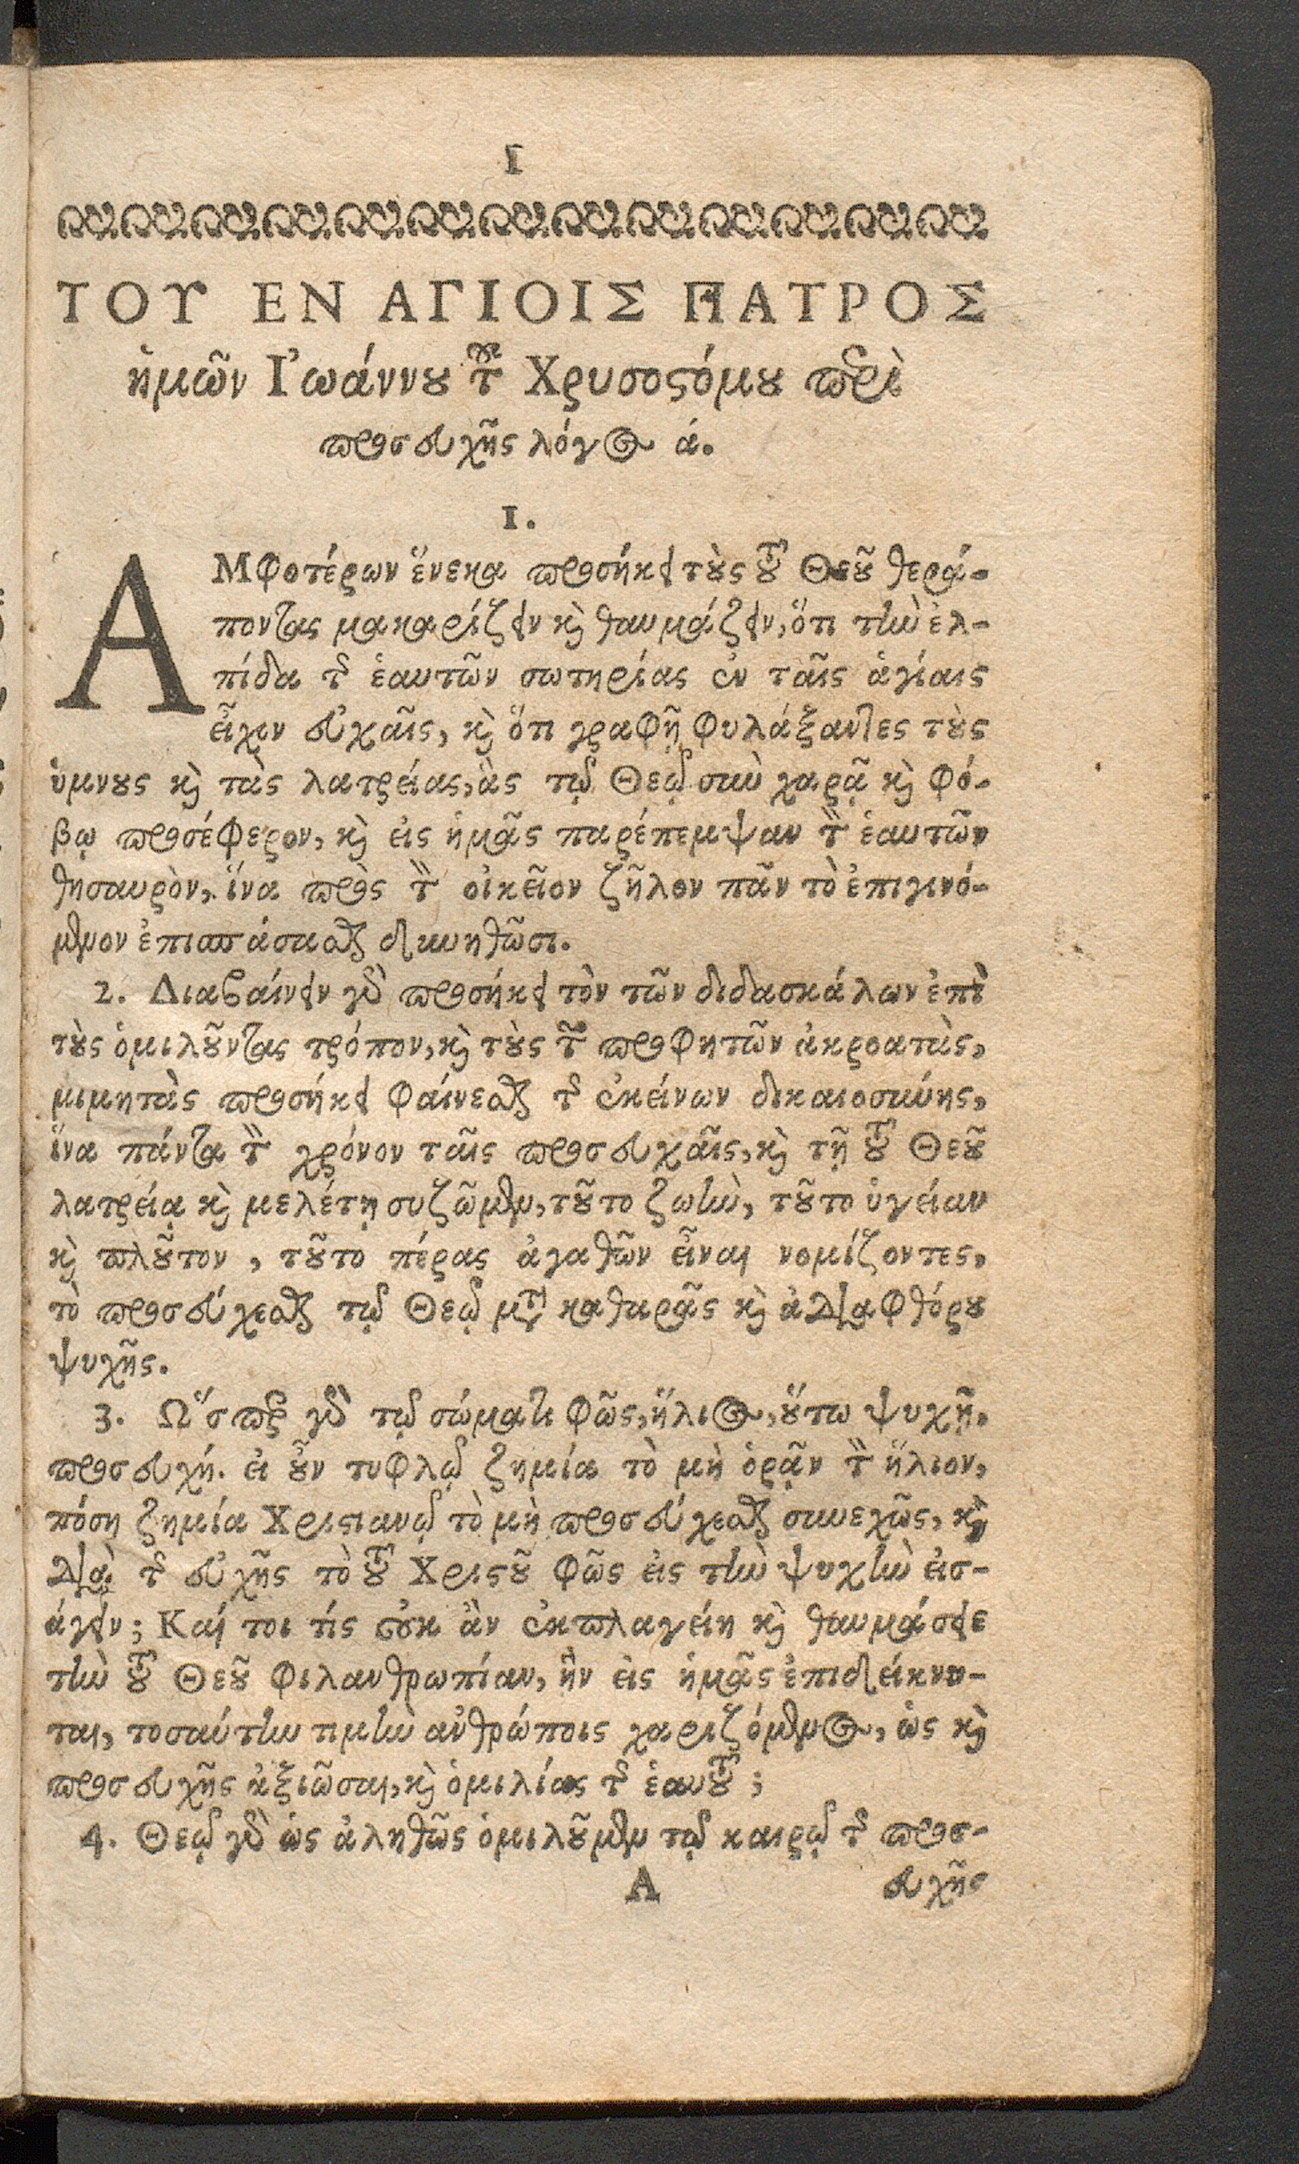 1
ΤΟΥ ΕΝ ΑΓΙΟΙΣ ΠΑΤΡΟΣ
ἡμῶν Ἰωάννου τοῦ Χρυσοστόμου περὶ
προσευχῆς λόγος ά.
1.
ΑΜφοτέρων ἕνεκα προσήκει τοὺς τοῦ Θεοῦ θερά-
ποντας μακαρίζειν καὶ θαυμάζειν, ὅτι τὴν ἐλ-
πίδα τῆς ἑαυτῶν σωτηρίας ἐν ταῖς ἁγίαις
εἶχιν εὐχαῖς, καὶ ὅτι γραφῇ φυλάξαντες τοὺς
ὑμνους καὶ τὰς λατρείας, ἃς τῷ Θεῷ σὺν χαρᾷ καὶ φό-
βῳ προσέφερον, καὶ εἰς ἡμᾶς παρέπεμψαν τὸν ἑαυτῶν
θησαυρὸν, ἵνα πρὸς τὸν οἰκεῖον ζῆλον πᾶν τὸ ἐπιγινό-
μενον ἐπισπάσασθαι δυνηθῶσι.
2. Διαβαίνειν γὰρ προσήκει τὸν τῶν διδασκάλων ἐπὶ
τοὺς ὁμιλοῦντας τρόπον, καὶ τοὺς τῶν προφητῶν ἀκροατὰς,
μιμητὰς προσήκει φαίνεσθαι τῆς ἐκείνων δικαιοσύνης,
ἵνα πάντα τὸν χρόνον ταῖς προσευχαῖς, καὶ τῇ τοῦ Θεοῦ
λατρείᾳ καὶ μελέτῃ συζῶμεν, τοῦτο ζωὴν, τοῦτο ὑγείαν
καὶ πλοῦτον, τοῦτο πέρας ἀγαθῶν εἶναι νομίζοντες,
τὸ προσεύχεσθαι τῷ Θεῷ μετὰ καθαρᾶς καὶ ἀδιαφθόρου
ψυχῆς.
3. Ὥσπερ γὰρ τῷ σώματι φῶς, ἥλιος, οὕτω ψυχῇ,
προσευχή. εἰ οὖν τυφλῷ ζημία τὸ μὴ ὁρᾷν τὸν ἥλιον,
πόση ζημία Χριστιανῷ τὸ μὴ προσεύχεσθαι συνεχῶς, καὶ
διὰ τῆς εὐχῆς τὸ τοῦ Χριστοῦ φῶς εἰς τὴν ψυχὴν εἰσ-
άγειν; Καί τοι τίς οὐκ ἂν ἐκπλαγείη καὶ θαυμάσειε
τὴν τοῦ Θεοῦ φιλανθρωπίαν, ἣν εἰς ἡμᾶς ἐπιδείκνυ-
ται, τοσαύτην τιμὴν ἀνθρώποις χαριζόμενος, ὡς καὶ
προσευχῆς ἀξιῶσαι, καὶ ὁμιλίας τῆς ἑαυτοῦ;
4. Θεῷ γὰρ ὡς ἀληθῶς ὁμιλοῦμεν τῷ καιρῷ τῆς προσ-
Α ευχῆς